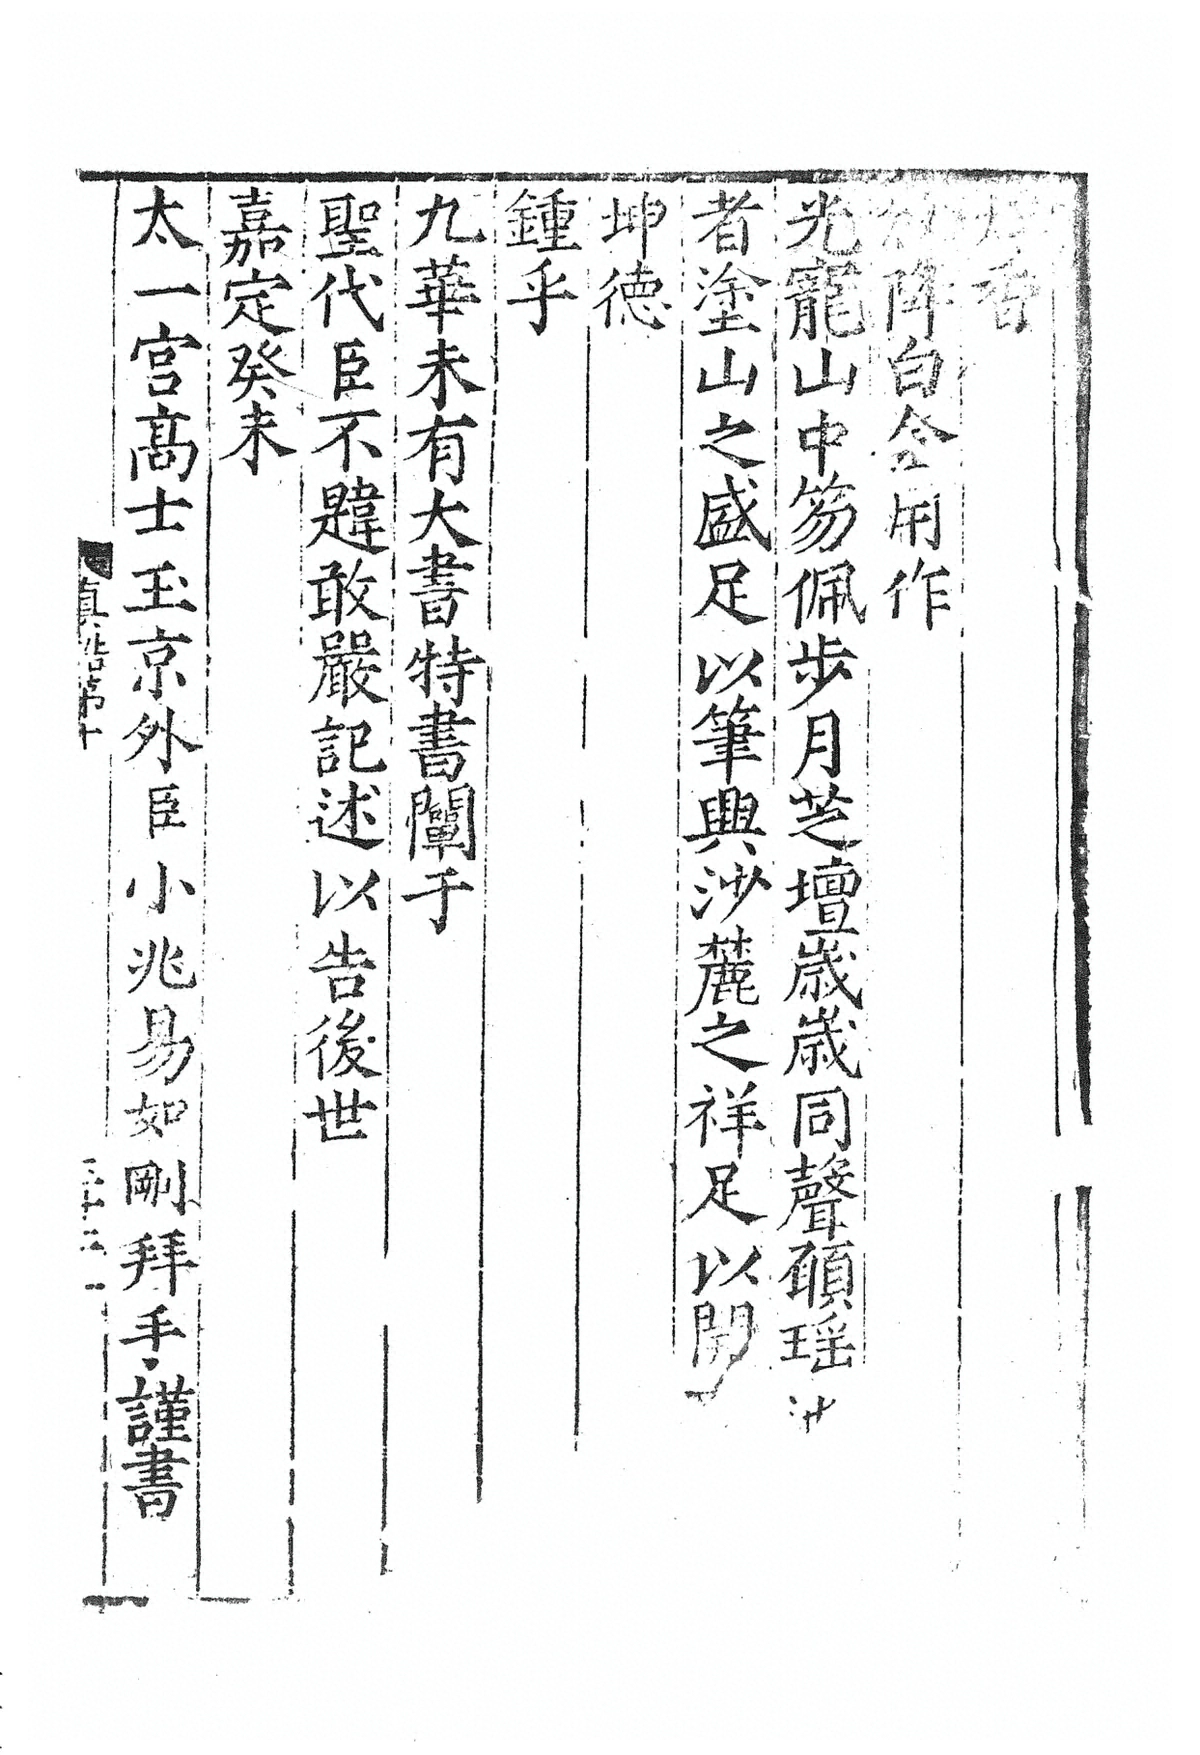 香
降白金用作
光寵山中笏佩步月芝壇歳歳同聲頌瑶
者塗山之盛足以筆興沙麓之祥足以開
坤德
鍾乎
九華未有大書特書闡于
聖代臣不韙敢嚴記述以告後世
嘉定癸未
太一宫髙士玉京外臣小兆易如剛拜手謹書
真誥第十